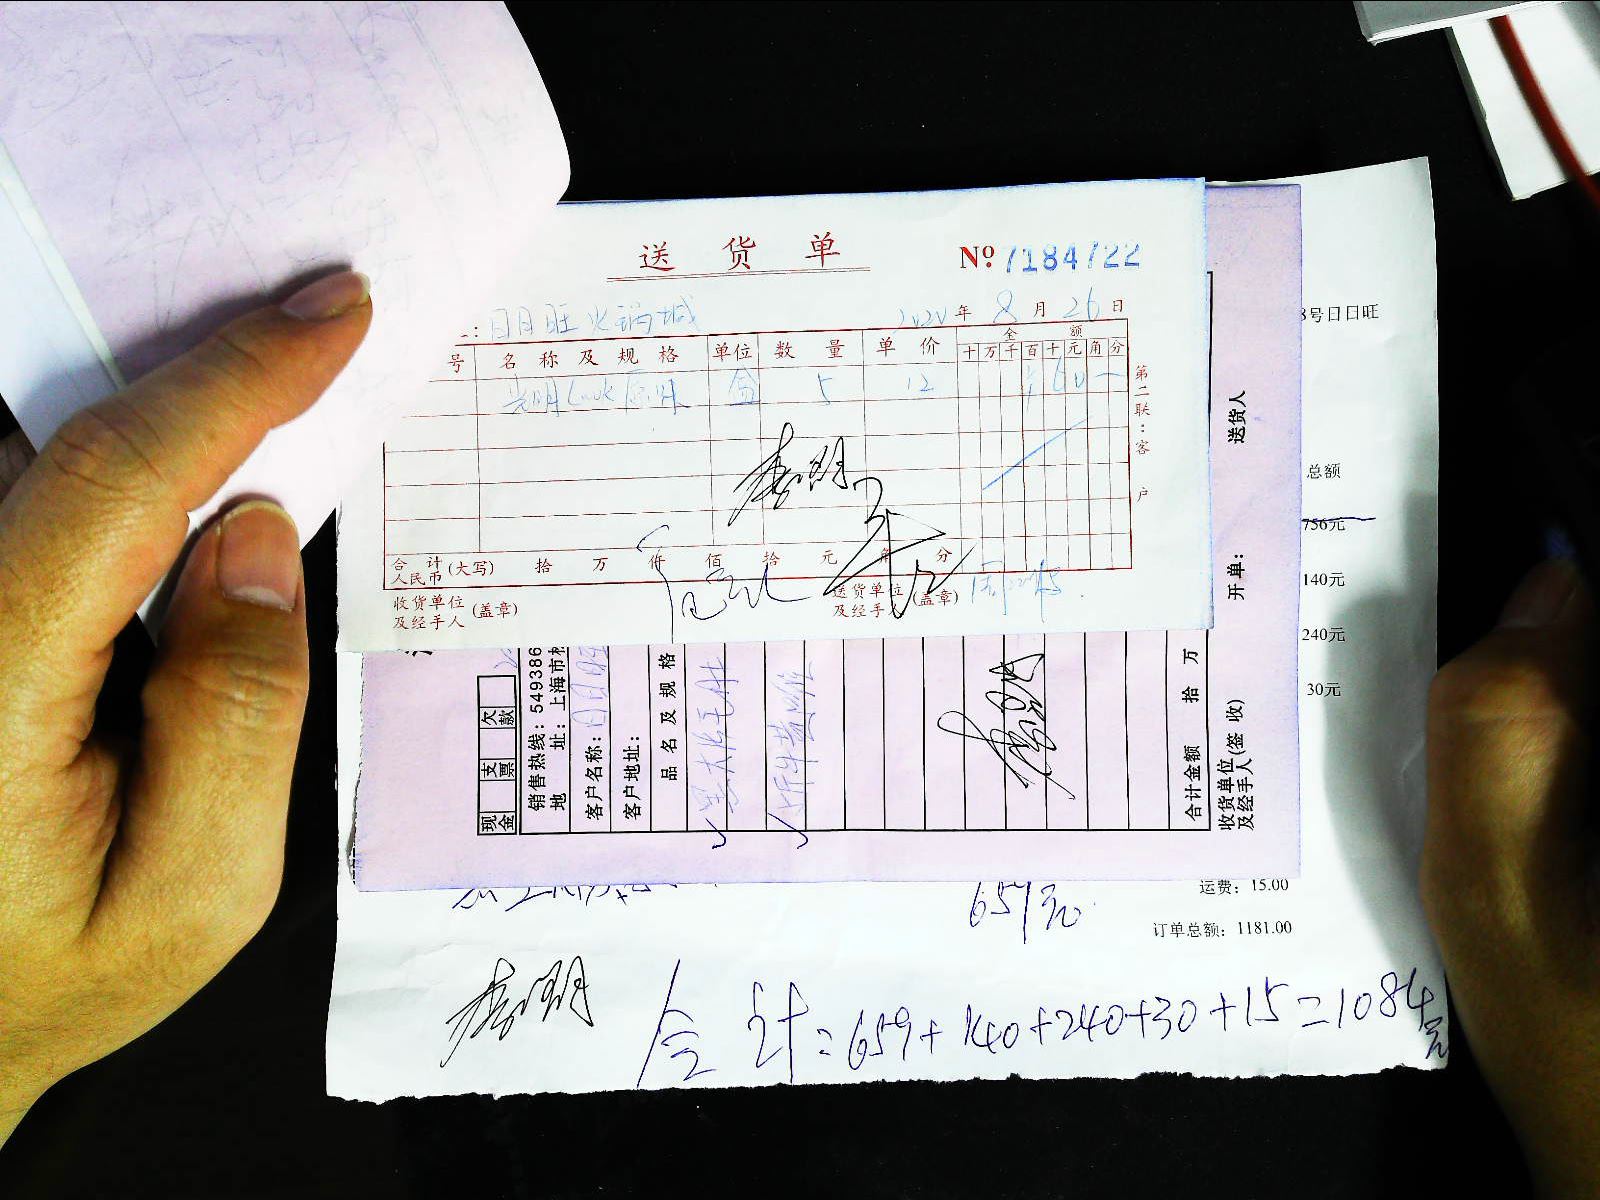 送 货 单
Nº 7184722
日日旺火锅城
2020 年 8 月 26 日
号 名 称 及 规 格 单位 数 量 单 价 金 额
十 万 千 百 十 元 角 分
光明 原味 盒 5 12 ¥ 6 0 一
第二联：客户
合 计 人民币 (大写) 拾 万 仟 佰 拾 元 角 分
收货单位及经手人 (盖章)
送货单位及经手人 (盖章)
现金 支票 欠款
销售热线：549386
地 址：上海市
客户名称：日日旺
客户地址：
品 名 及 规 格
合计金额 拾 万
收货单位(签 收)
及经手人
开单：
送货人
8号日日旺
总额
756元
140元
240元
30元
运费：15.00
659元
订单总额：1181.00
合计：659+140+240+30+15=1084元